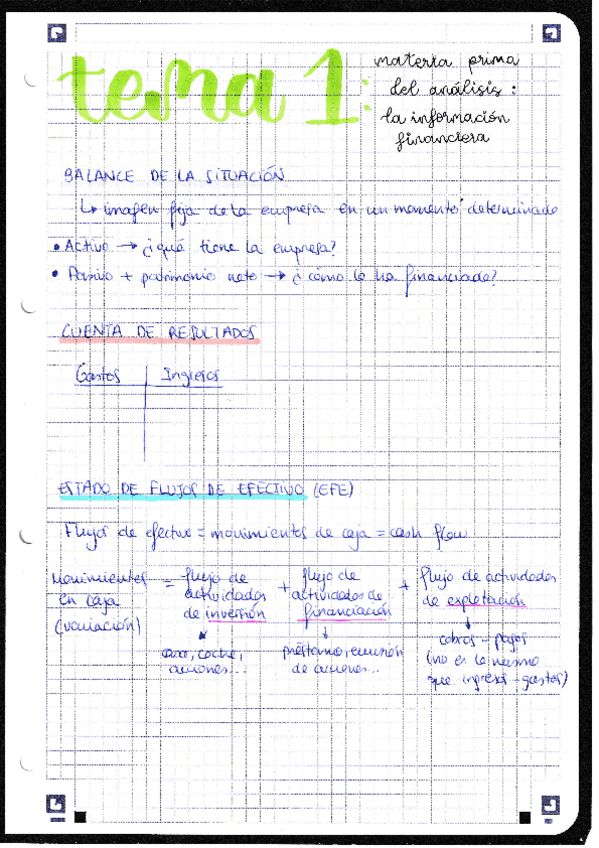 tema 1:
materia prima
del análisis:
la información
financiera
BALANCE DE LA SITUACIÓN
↳ imagen fija de la empresa en un momento determinado
• Activo → ¿qué tiene la empresa?
• Pasivo + patrimonio neto → ¿cómo lo ha financiado?
CUENTA DE RESULTADOS
Gastos | Ingresos
ESTADO DE FLUJOS DE EFECTIVO (EFE)
Flujos de efectivo = movimientos de caja = cash flow
Movimientos
en caja
(variación)
= flujo de
actividades
de inversión
+ flujo de
actividades de
financiación
+ flujo de actividades
de explotación
↓
coche,
acciones...
↓
préstamo, emisión
de acciones...
↓
cobros - pagos
(no es lo mismo
que ingresos - gastos)